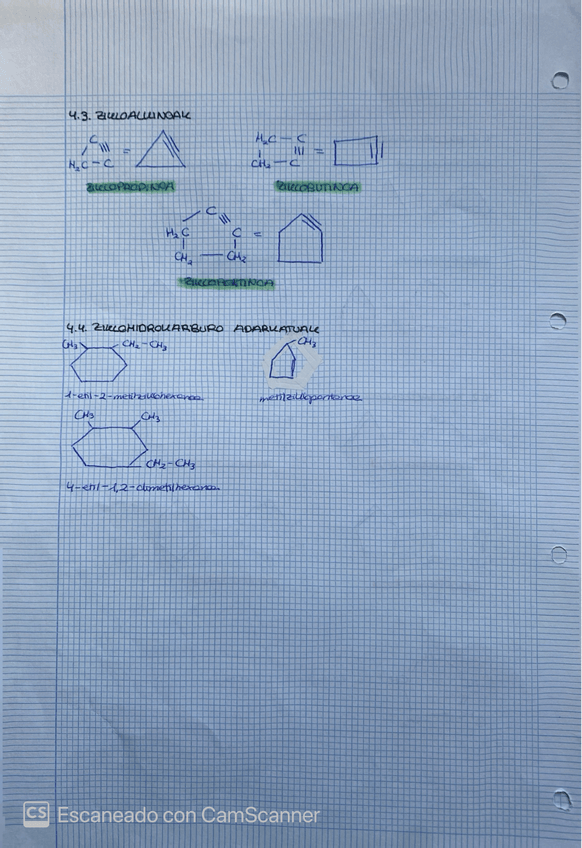 4.3. ZIKLOALKINOAK
C
H₂C - C =
H₂C - C
CH₂ - C =
ZIKLOPROPINOA
ZIKLOBUTINOA
C
H₂C C =
CH₂ - CH₂
ZIKLOPENTINOA
4.4. ZIKLOHIDROKARBURO ADARKATUAK
CH₃ CH₂-CH₃
CH₃
1-etil-2-metilziklohexanoa
metilziklopentanoa
CH₃ CH₃
CH₂-CH₃
4-etil-1,2-dimetilhexanoa
CS Escaneado con CamScanner